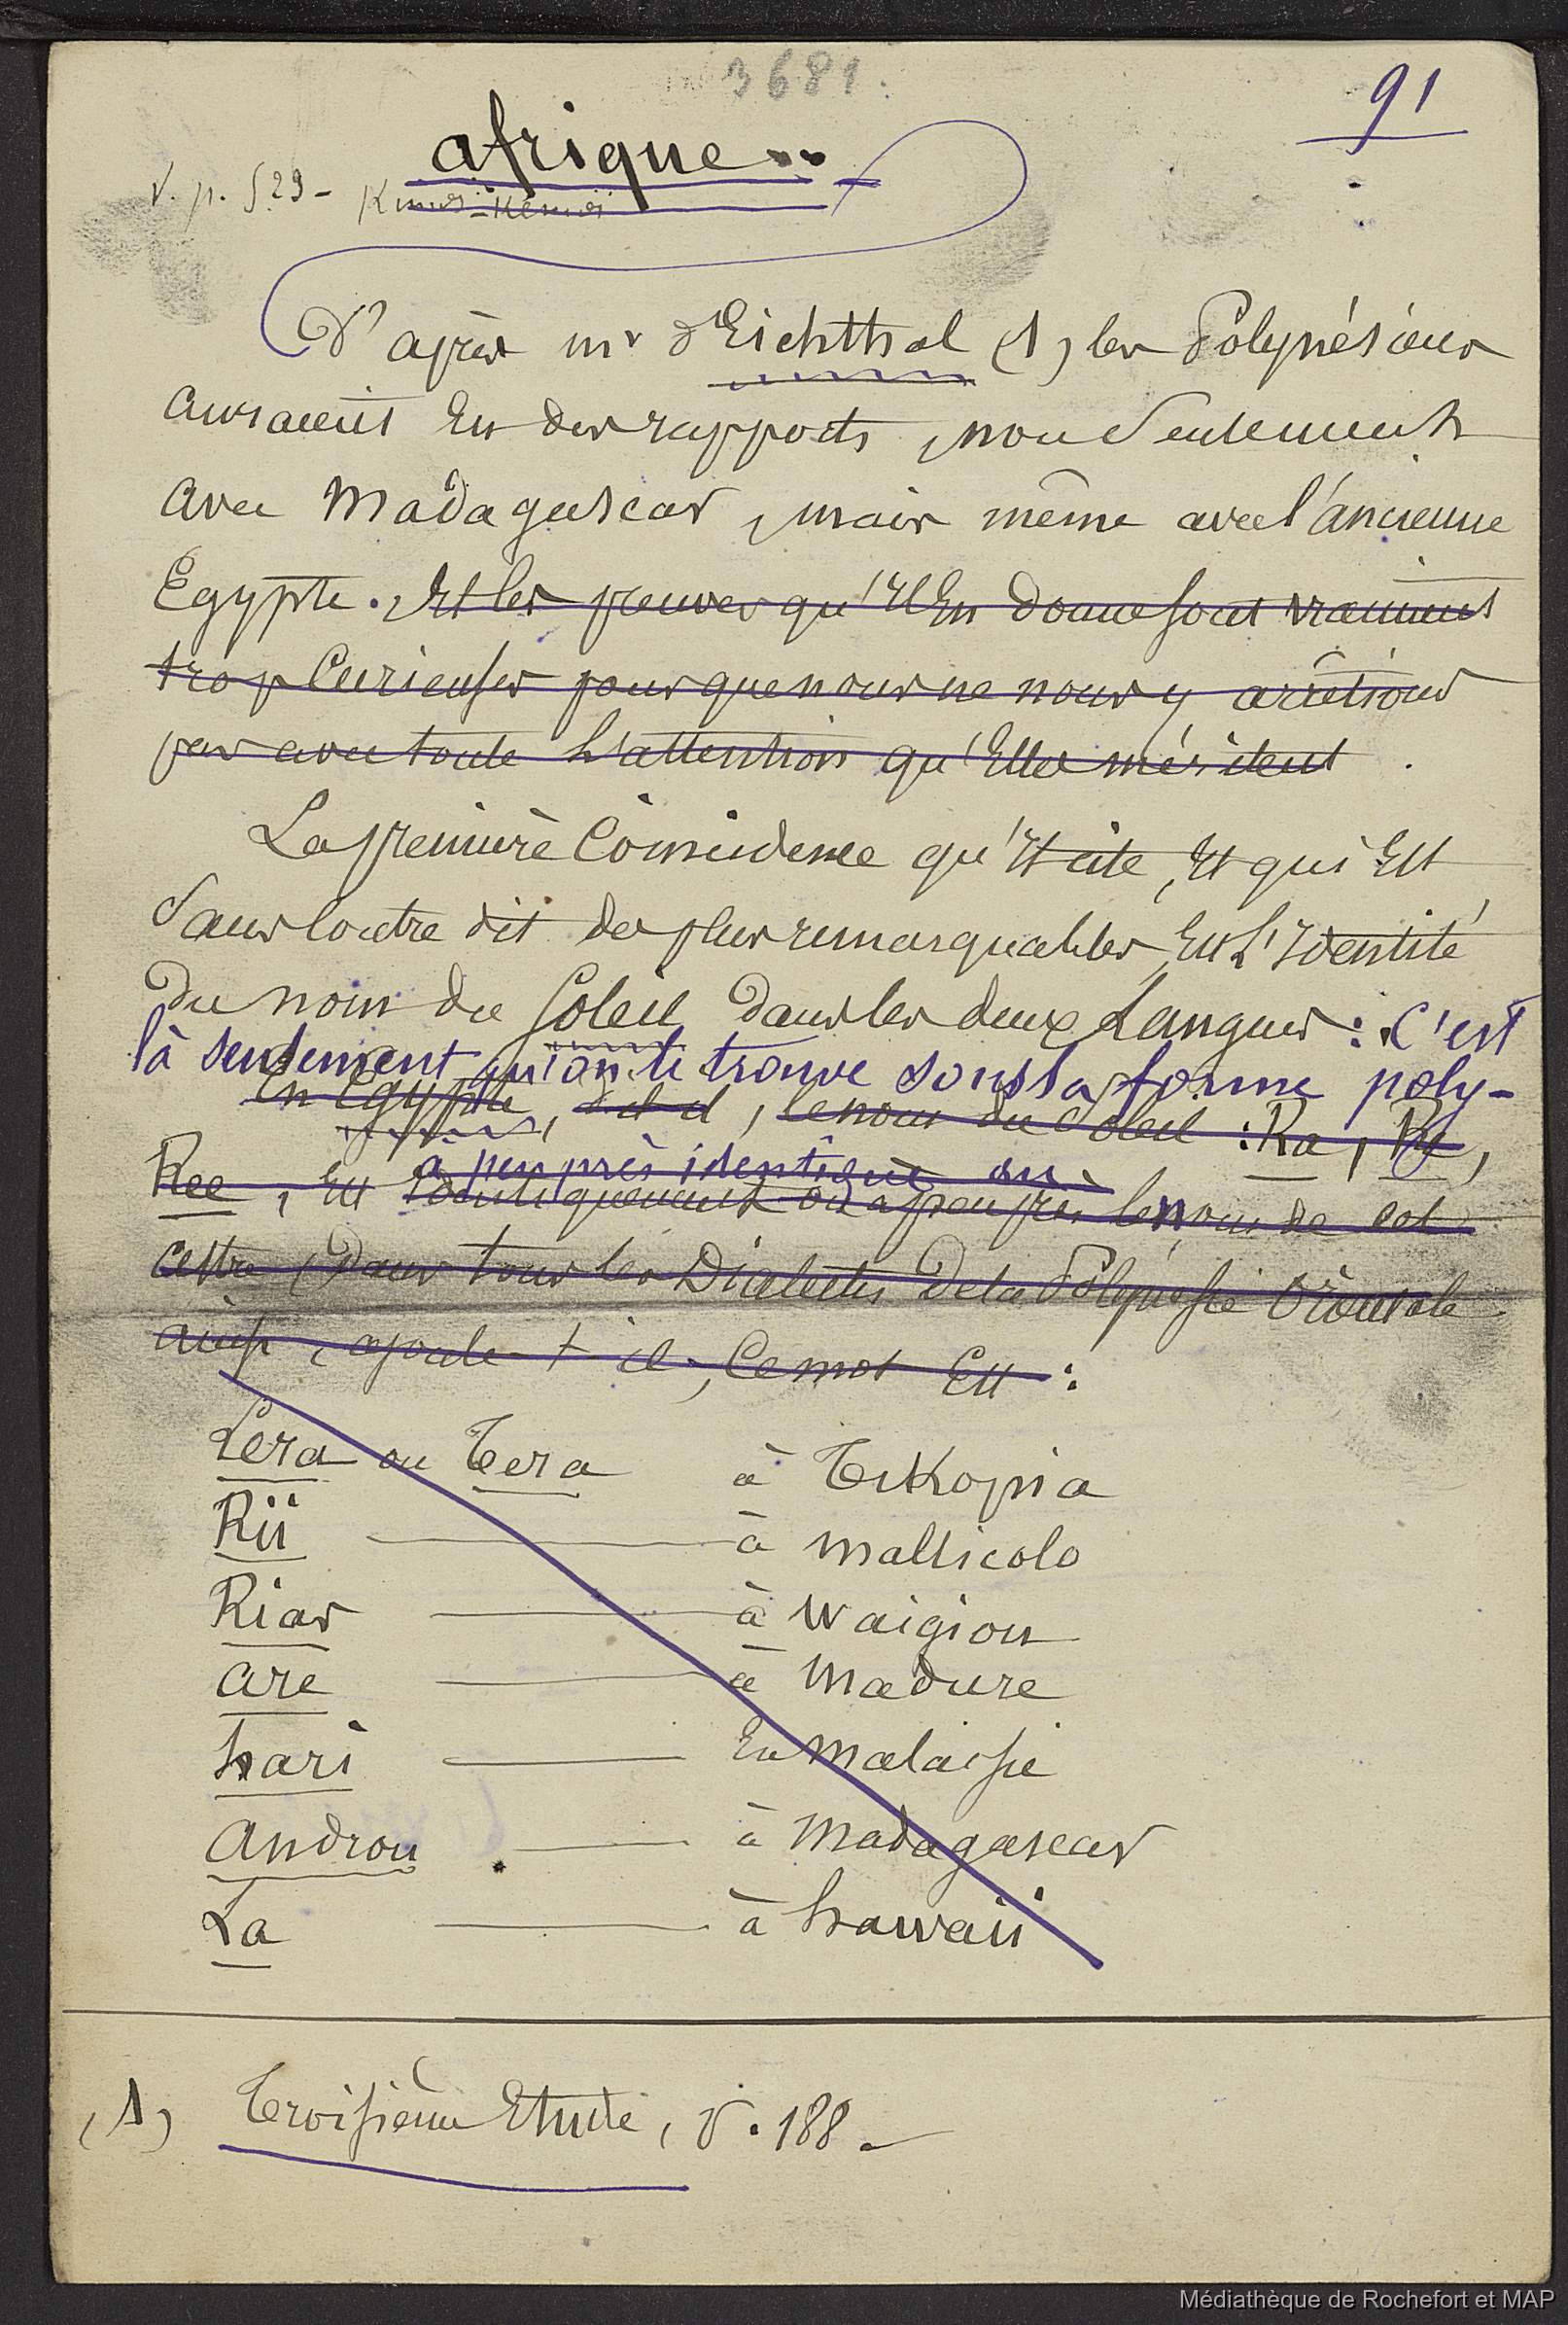 3681.
91
afrique..
V. p. 529 -
D'après mr d'Eichthal (1) les Polynésiens
auraient eu des rapports, non seulement
avec Madagascar, mais même avec l'ancienne
Egypte. Et les preuves qu'il en donne sont vraiment
trop curieuses pour que nous ne nous y arrêtions
pas avec toute l'attention qu'elles méritent.
La première coïncidence qu'il cite, et qui est
sans contre dit des plus remarquables, est l'identité
du nom du Soleil dans les deux langues : c'est
là seulement qu'on le trouve sous la forme poly-
En Egypte, dit il, le nom du Soleil : Ra, Re,
à peu près identique ou
Ree, est identiquement ou à peu près le nom de cet
astre, dans tous les Dialectes de la Polynésie Orientale
ainsi, ajoute t il, ce mot est :
Lera ou Tera à Tikopia
Rii — à Mallicolo
Riar — à Waigiou
are — à Madure
hari — en Malaisie
androu — à Madagascar
La — à hawaii
(1) Troisième Etude, p. 188 -
Médiathèque de Rochefort et MAP